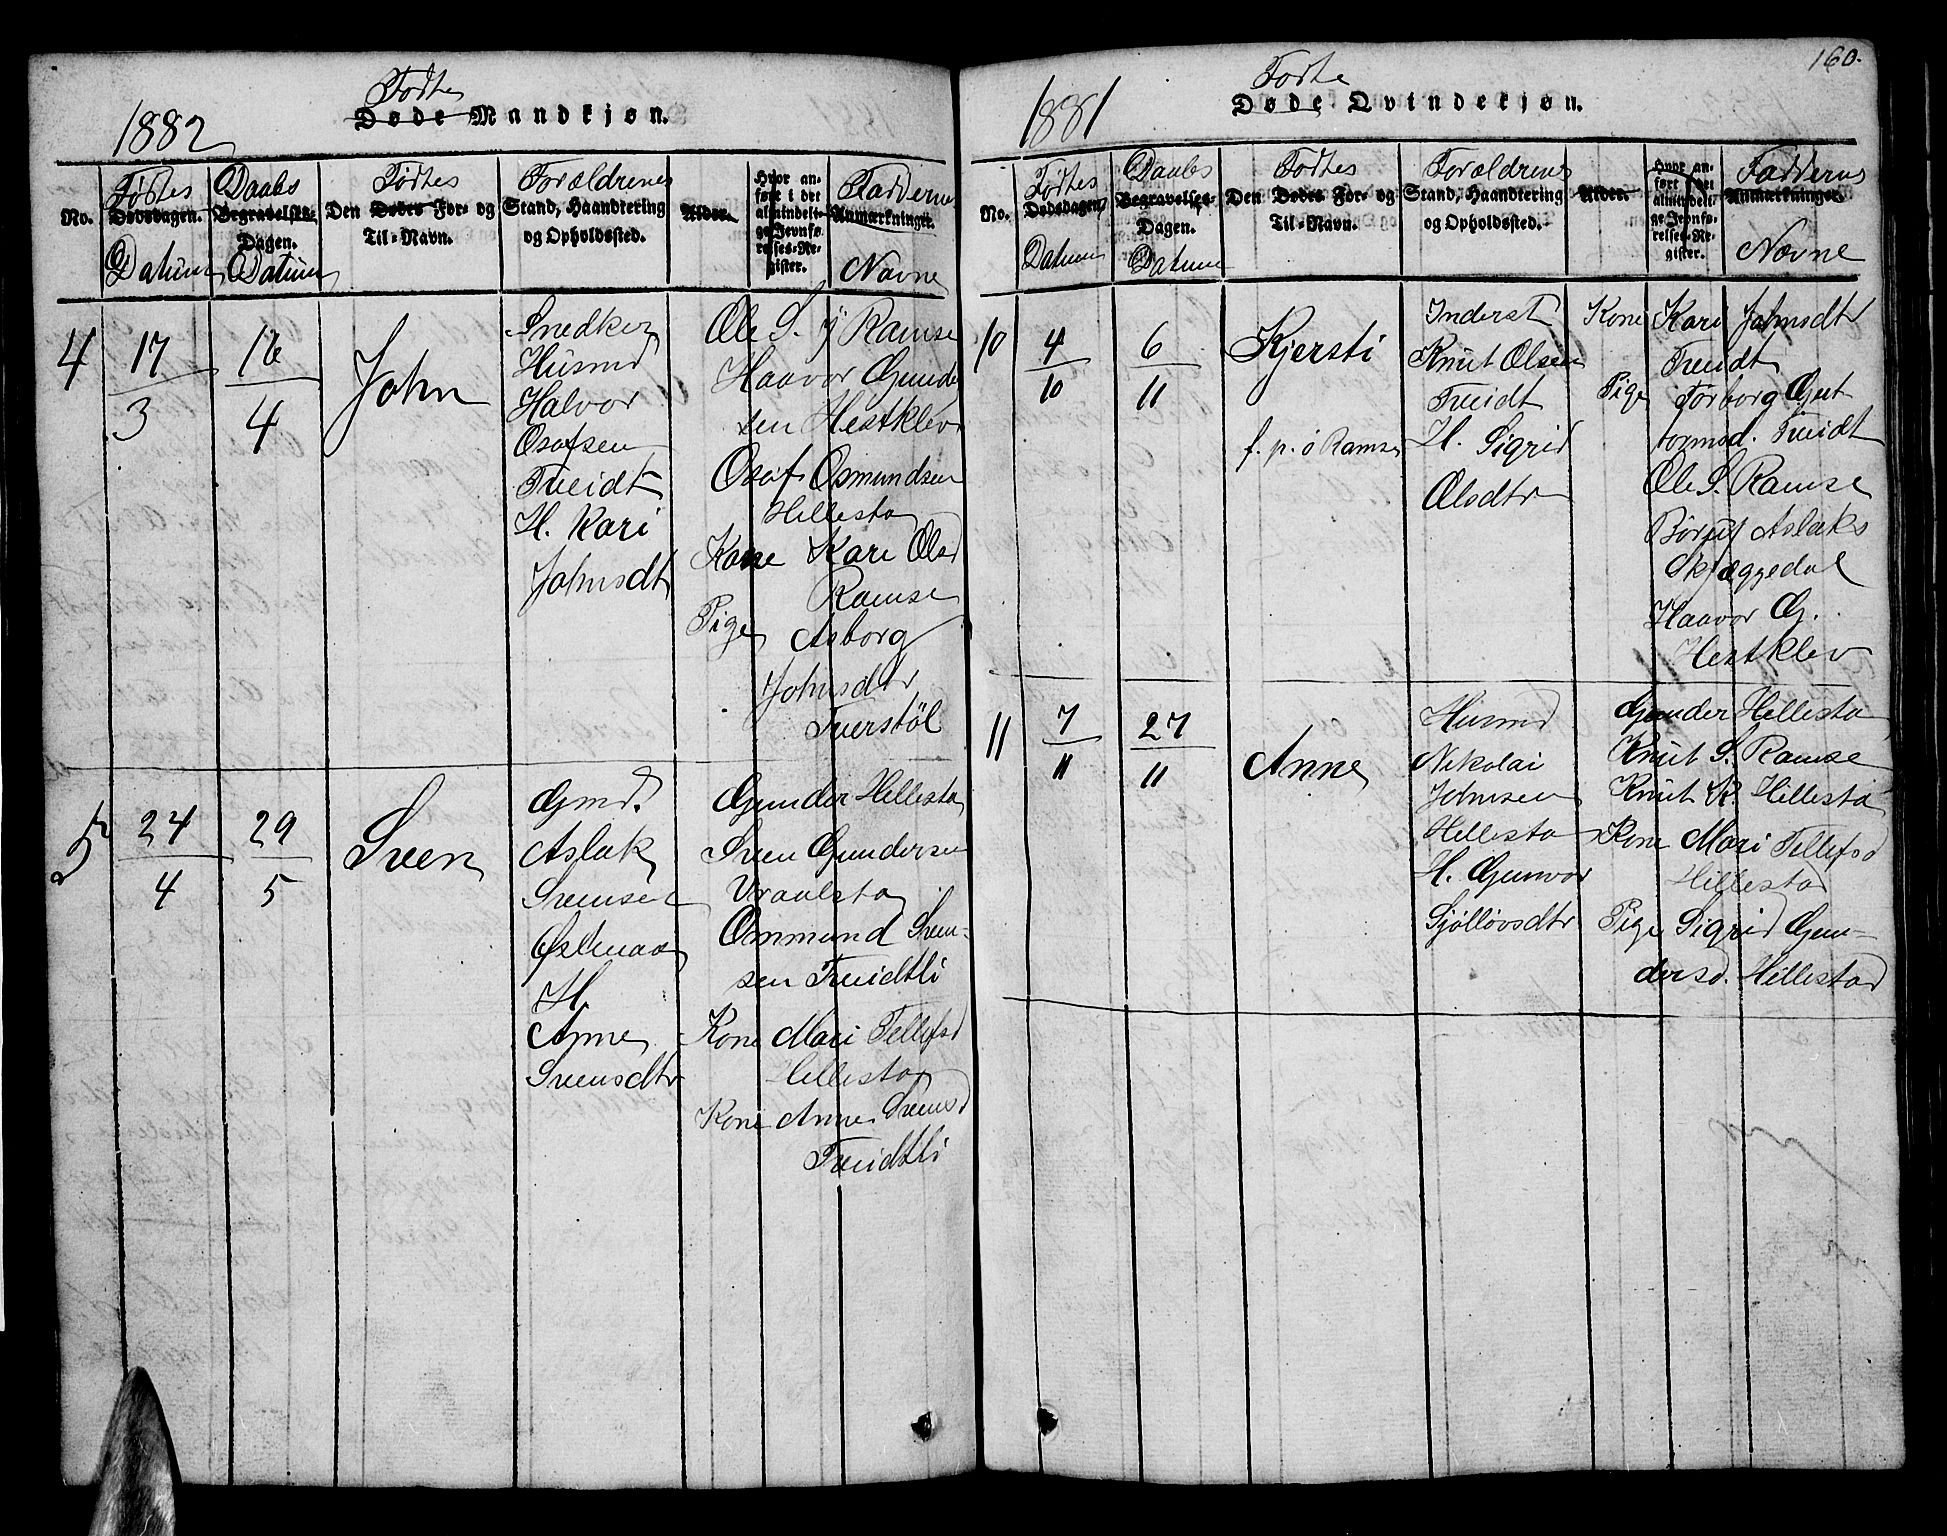 1882
Fødte
Døde Mandkjøn.
No.
Fødtes
Dødsdagen.
Datum
Daabs
Begravelses-
Dagen.
Datum
Fødtes
Den Dødes For- og
Til-Navn.
Forældrenes
Stand, Haandtering
og Opholdssted.
Alder.
Hvor an-
ført i det
almindeli-
ge Jevnfø-
relses-Re-
gister.
Faddernes
Anmærkninger.
Navne
4
17
3
16
4
John
Snedker
Husmd
Halvor
Osofsen
Treidt
H. Kari
Johnsdt
Ole S. Ramse
Haavor Gunder
sen Hestklev
Osof Osmundsen
Hillesta
Kone Kari Olsd
Ramse
Pige Asborg
Johnsdtr
Tverstöl
5
24
4
29
5
Sven
Gmd.
Aslak
Svensen
H.
Anne
Svensdtr
Gunder Hillesta
Sven Gundersen
Vraalsta
Ommund Sven-
sen Treidtli
Kone Mari Tellefsd
Hillesta
Kone Anne Svensd
Treidtli
160.
1881
Fødte
Døde Qvindekjøn.
No.
Fødtes
Dødsdagen
Datum
Daabs
Begravelses-
Dagen.
Datum
Fødtes
Den Dødes For- og
Til-Navn.
Forældrenes
Stand, Haandtering
og Opholdssted.
Alder.
Hvor an-
ført i det
almindeli-
ge Jevnfø-
relses-Re-
gister.
Faddernes
Anmærkninger
Navne
10
4
10
6
11
Kjersti
f. p. ö Ramse
Inderst
Knut Olsen
Treidt
H. Sigrid
Olsdtr
Kone Kari Johnsdtr
Treidt
Pige Torborg Gut
tormsd. Treidt
Ole S. Ramse
Aslaks
Skjæggedal
Haavor G.
Hestklev
11
7
11
27
11
Anne
Husmd
Nikolai
Johnsen
Hillesta
H. Gunvor
Sjöllövsdtr
Gunder Hillesta
Knut S. Ramse
Knut K. Hillesta
Kone Mari Tellefsd
Hillestad
Pige Sigrid Gun-
dersd. Hillestad